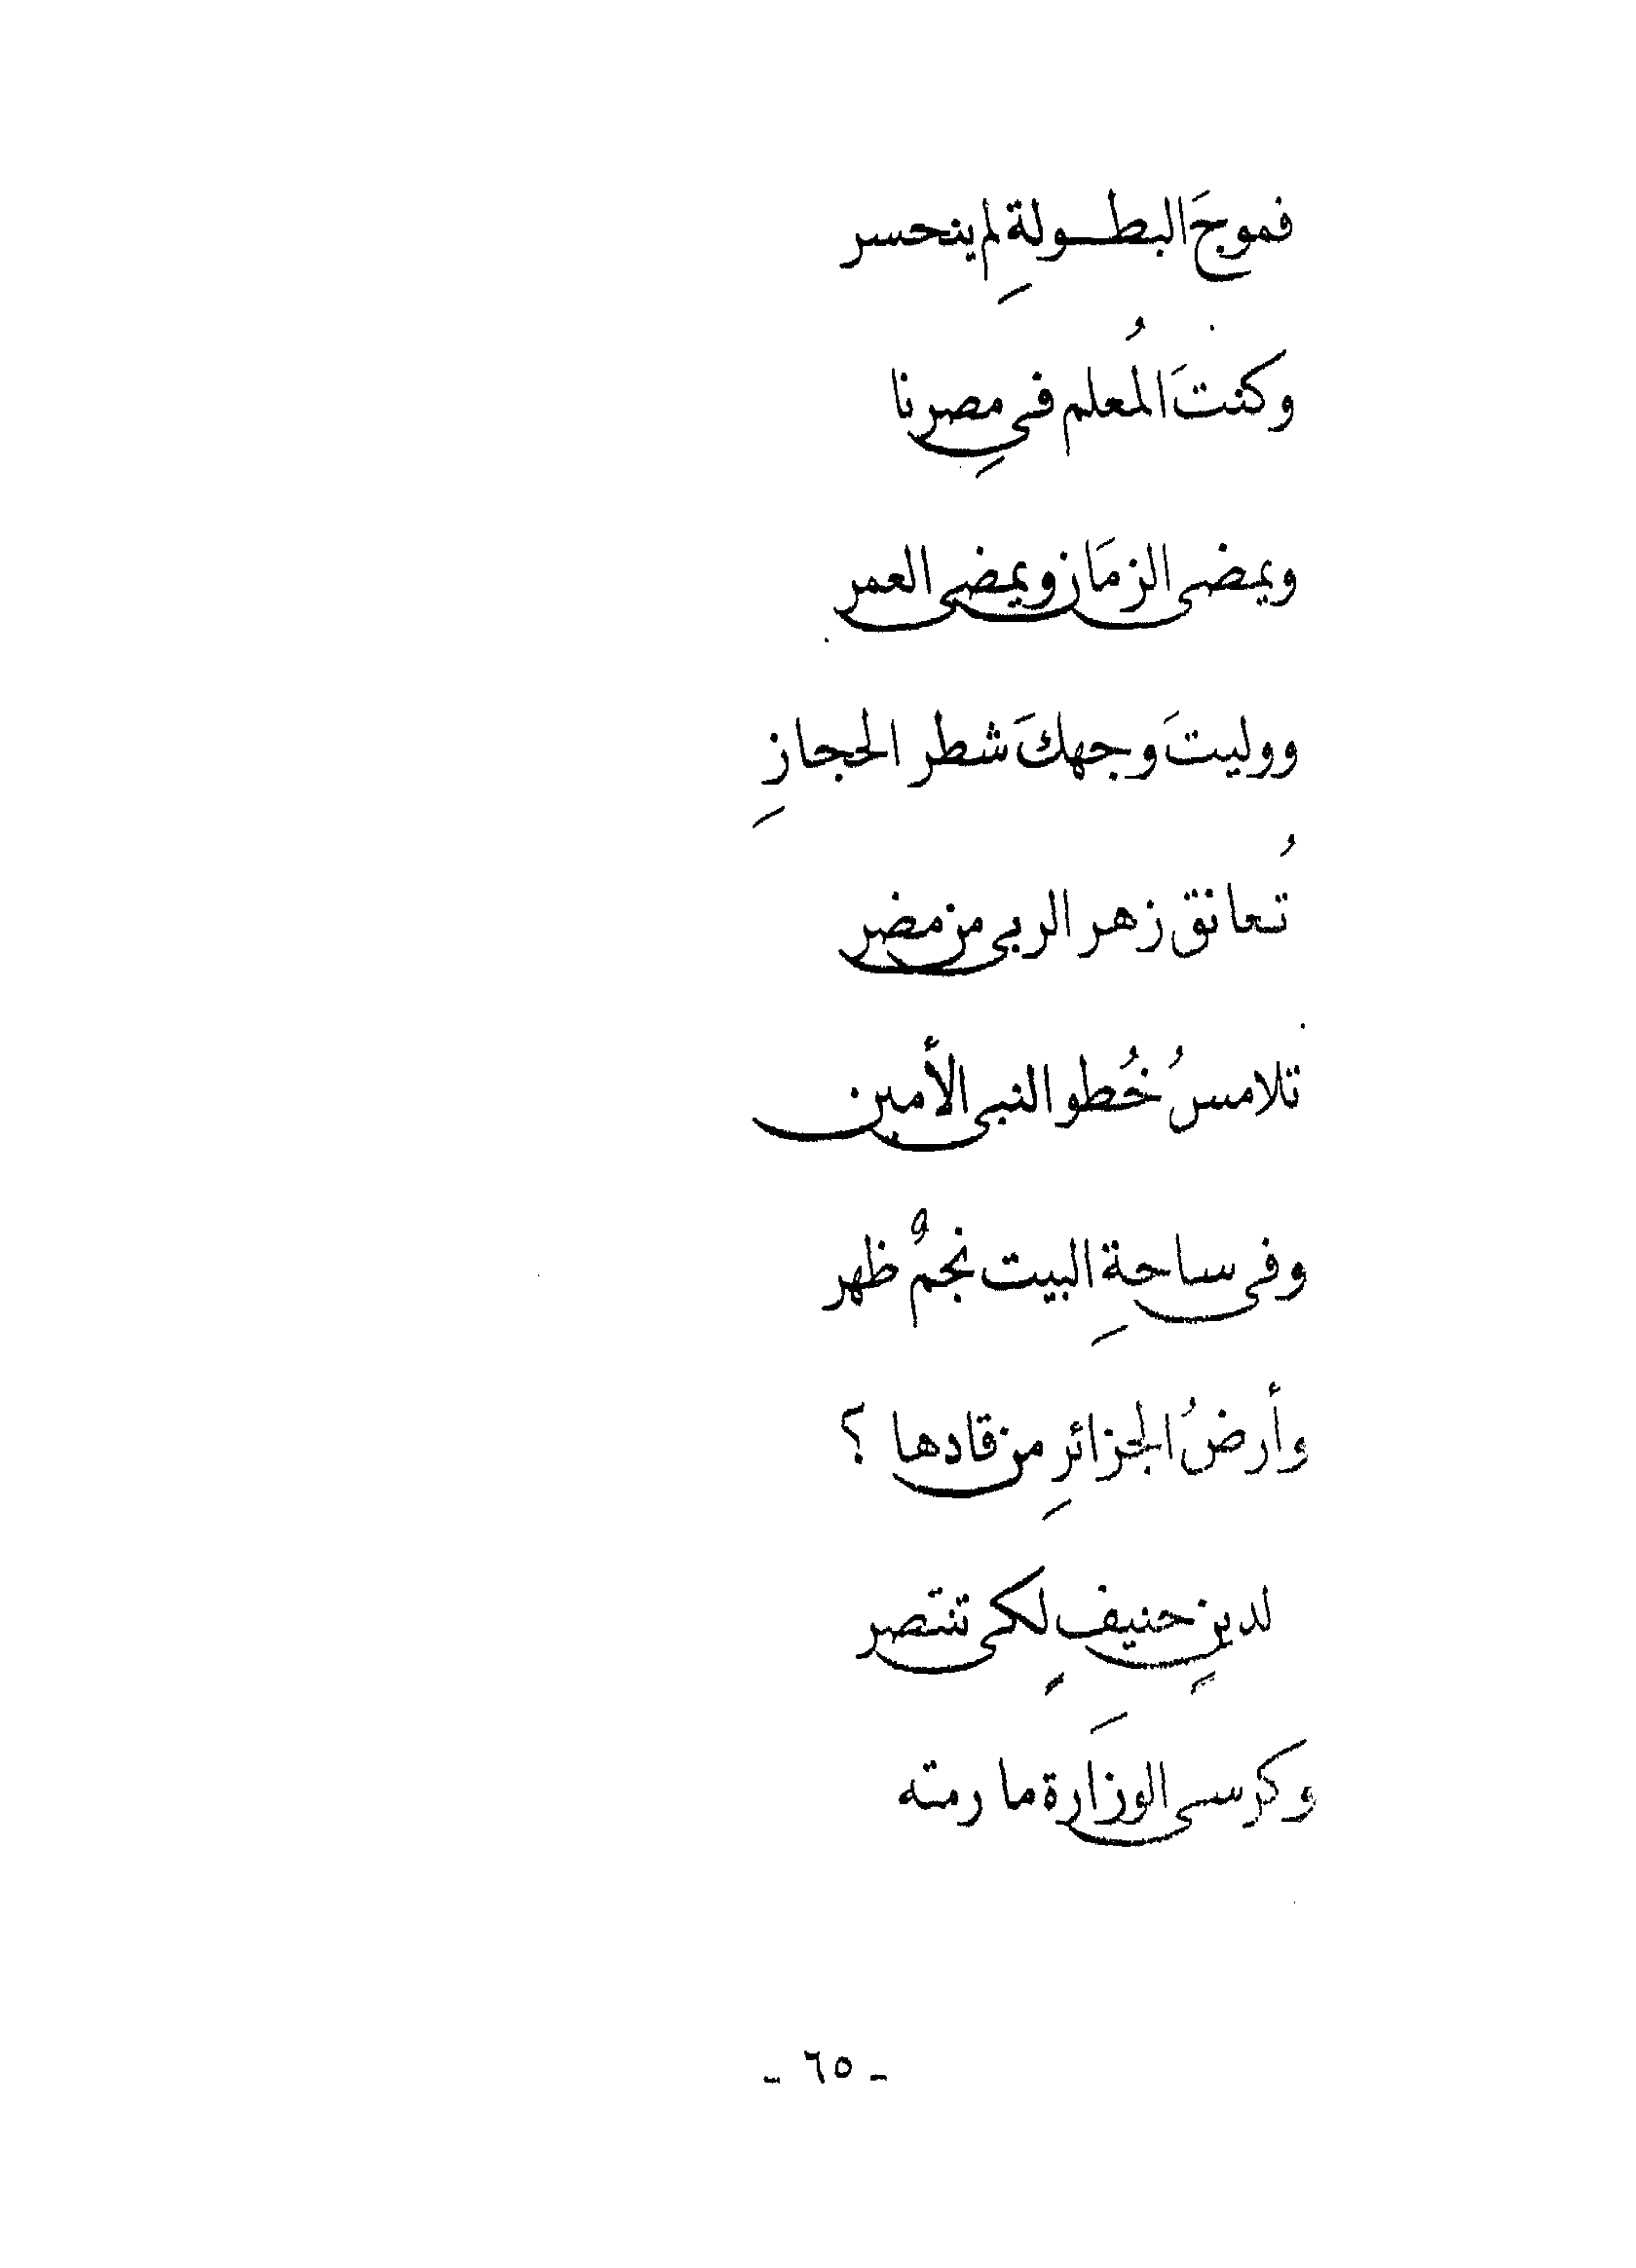 فموجَ البطولةِ لم ينحسر
وكنتَ المُعلم في مصرِنا
ويمضى الزمَان ويمضى العمر
ووليتَ وجهكَ شطر الحجازِ
تُعانق زهر الربى من مضر
تلامسُ خُطو النبى الأمين
وفى ساحةِ البيت نجمٌ ظهر
وأرضُ الجزائرِ من قادها ؟
لدينٍ حنيفٍ لكى تنتصر
وكرسى الوزَارة ما رمته
- ٦٥ -